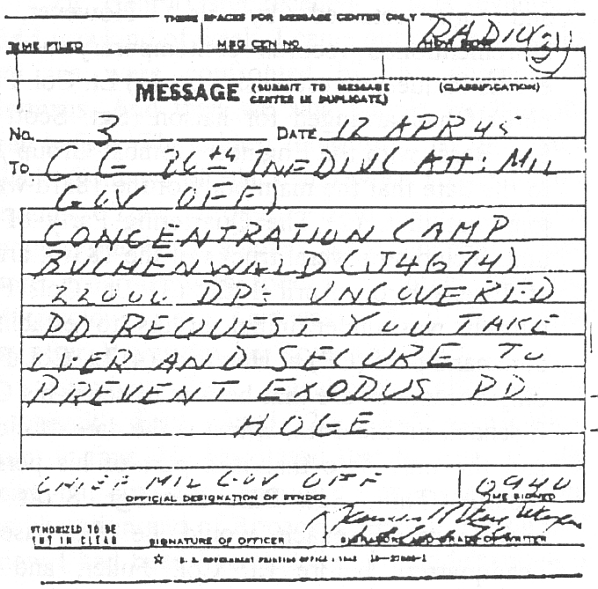 THESE SPACES FOR MESSAGE CENTER ONLY
TIME FILED MSG CEN NO. HOW SENT
MESSAGE (SUBMIT TO MESSAGE CENTER IN DUPLICATE) (CLASSIFICATION)
No. 3 DATE 12 APR 45
To C G 80th INF DIV (ATT: MIL
GOV OFF)
CONCENTRATION CAMP
BUCHENWALD (J4674)
22000 DPs UNCOVERED
PD REQUEST YOU TAKE
OVER AND SECURE TO
PREVENT EXODUS PD
HOGE
CHIEF MIL GOV OFF 0940
OFFICIAL DESIGNATION OF SENDER TIME SIGNED
AUTHORIZED TO BE
SENT IN CLEAR SIGNATURE OF OFFICER SIGNATURE AND GRADE OF WRITER
☆ U. S. GOVERNMENT PRINTING OFFICE